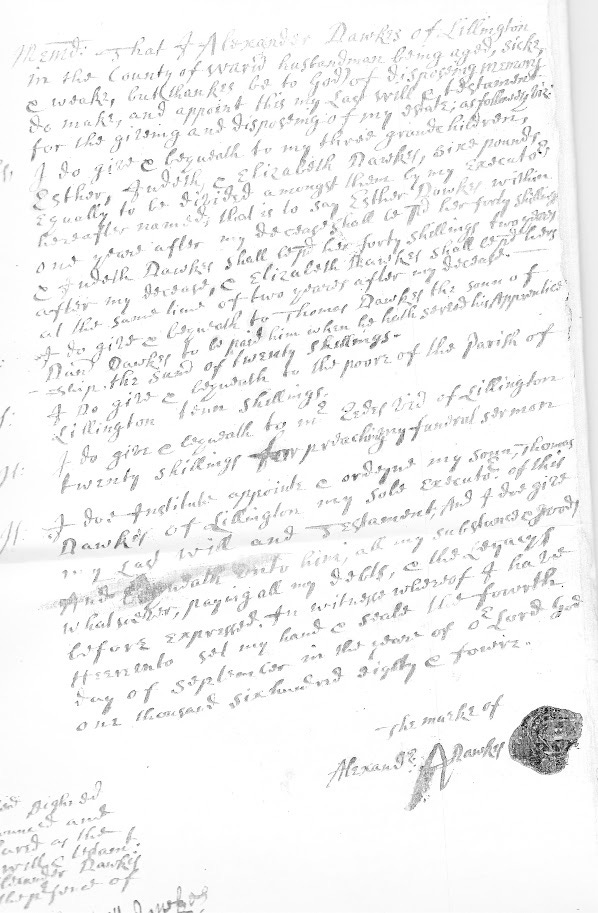 Memd: That I Alexander Dawkes of Lillington
in the County of Warw: husbandman being aged, sicke,
& weake, but (thankes be to God) of disposing memory
do make, and appoint this my Last will & testament
for the giveing and disposeing of my estate; as followeth viz:
I do give & bequeath to my three grandchildren,
Esther, Judeth, & Elizabeth Dawkes, sixe pounds
Equally to be divided amongst them by my Executor
hereafter named; that is to say Esther Dawkes within
one yeare after my decease shall be pd her forty shillings
& Judeth Dawkes shall be pd her forty shillings two years
after my decease, & Elizabeth Dawkes shall be pd hers
at the same time of two yeares after my decease.
I do give & bequeath to Thomas Dawkes the sonn of
Dan: Dawkes to be paid him when he hath served his Apprentice
-ship the sum of twenty shillings.
I do give & bequeath to the poore of the Parish of
Lillington tenn shillings.
I do give & bequeath to mr of Lillington
twenty shillings for preaching my funeral sermon
I doe Institute appointe & ordeyne my sonn, Thomas
Dawkes of Lillington my sole Executor of this
my Last will and Testament; And I doe give
And bequeath unto him, all my substance & goods
whatsoever, paying all my debts, & the Legacys
before expressed. In witnesse whereof I have
Hereunto set my hand & seale the fowerth
day of September in the yeare of or Lord God
one thousand six hundred eighty & fower.
The marke of
Alexandr A Dawkes
signed
and
as the
will & testamt.
Alexander Dawkes
the presence of